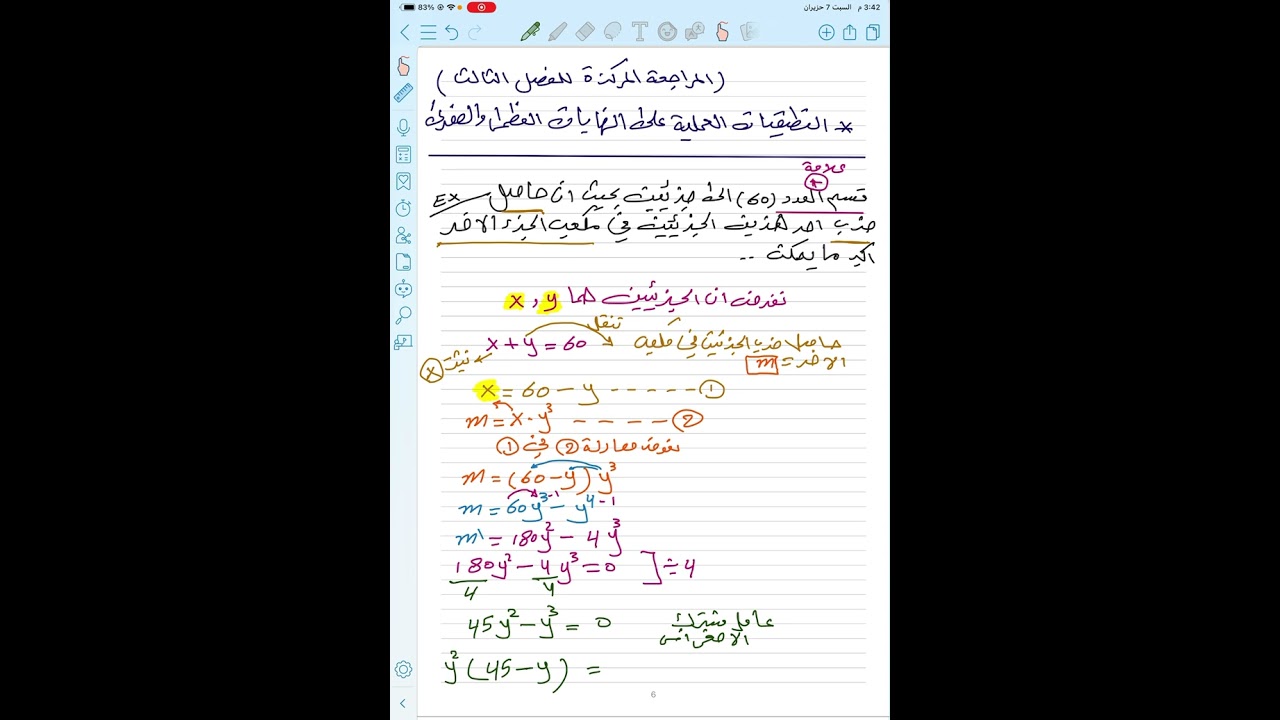 3:42 م السبت 7 حزيران
83%
(المراجعة المركزة للفصل الثالث)
* التطبيقات العملية على النهايات العظمى والصغرى
علامة
+
Ex قسم العدد (60) الى جزئين بحيث ان حاصل
ضرب احد هذين الجزئيين في مكعب الجزء الاخر
اكبر ما يمكن ..
نفرض ان الجزئيين هما x , y
تنقل
x + y = 60
حاصل ضرب الجزئين في مكعب
الاخر = m
x
x = 60 - y ------ ①
m = x · y³ ---- ②
نعوض معادلة ② في ①
m = (60 - y) y³
m = 60y³⁻¹ - y⁴⁻¹
m' = 180y² - 4y³
180y² - 4y³ = 0 ] ÷ 4
4 4
45y² - y³ = 0 عامل مشترك
y² (45 - y) =
6